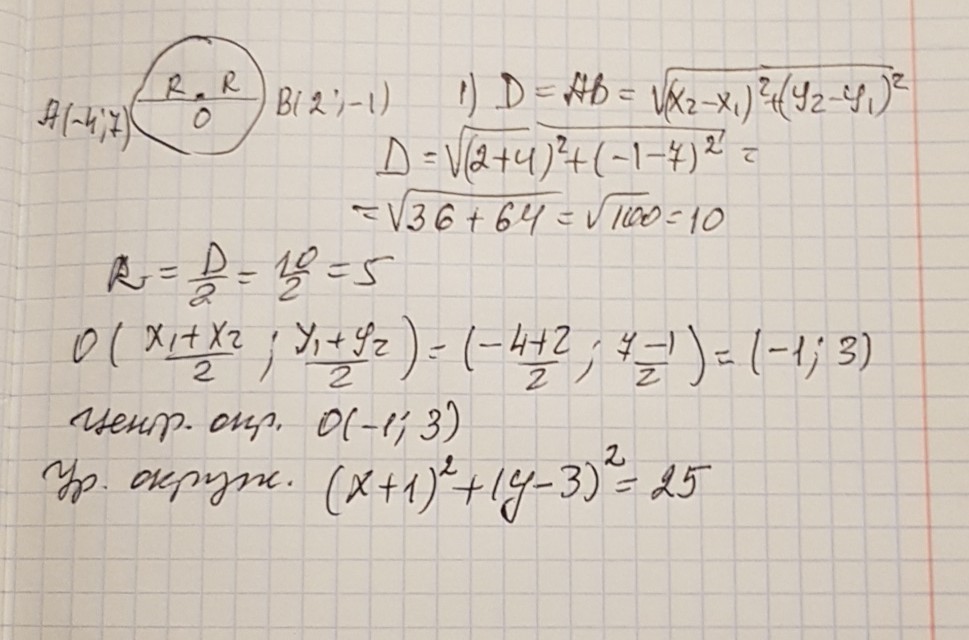 R R
O
A(-4;7)
B(2;-1)
1) D = AB = √((x₂-x₁)²+(y₂-y₁)²)
D = √((2+4)²+(-1-7)²) =
= √(36+64) = √100 = 10
R = D/2 = 10/2 = 5
O( (x₁+x₂)/2 ; (y₁+y₂)/2 ) = ( (-4+2)/2 ; (7-1)/2 ) = (-1; 3)
центр. окр. O(-1; 3)
Ур. окруж. (x+1)²+(y-3)² = 25